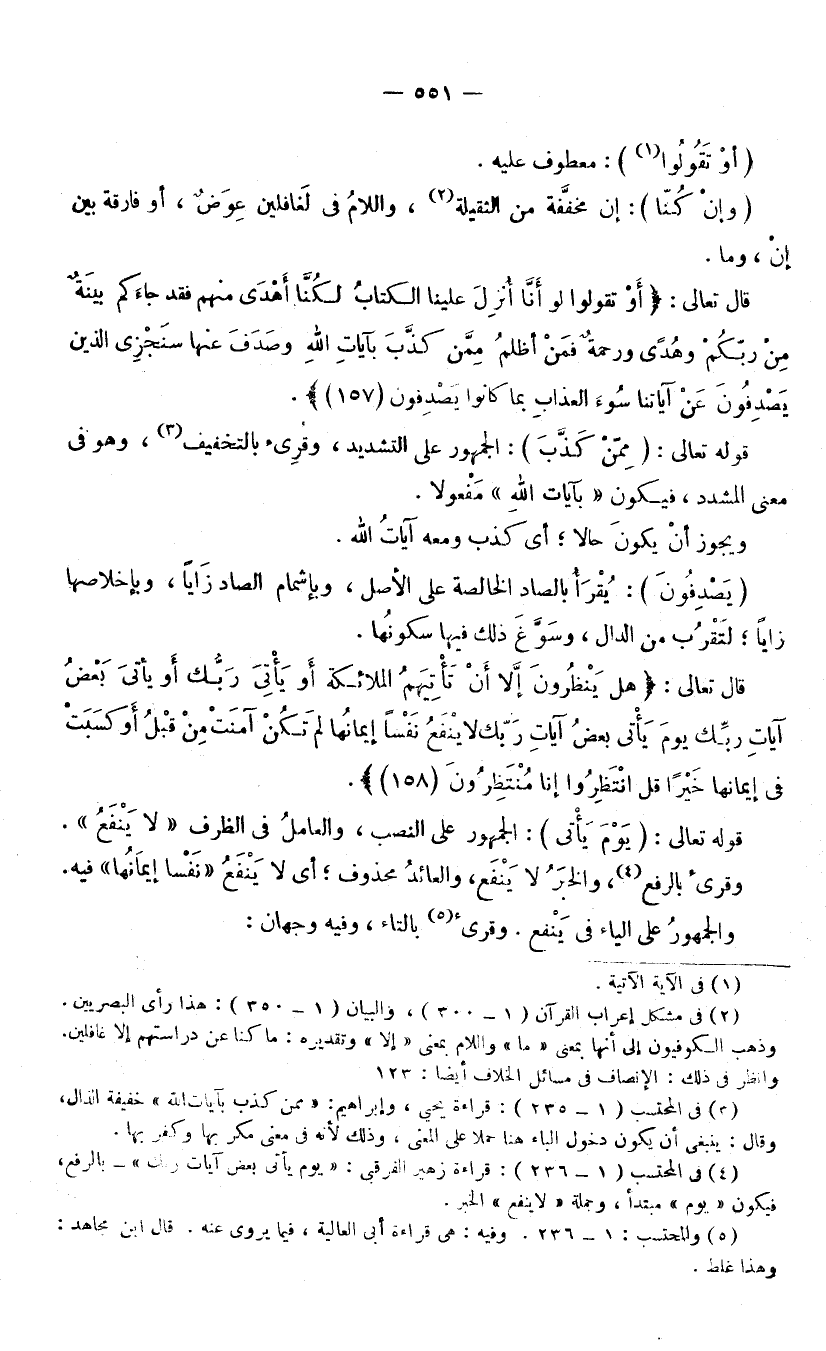 — ٥٥١ —
( أوْ تَقُولُوا(١) ) : معطوف عليه .
( وإنْ كُنّا ) : إن مخفَّفة من الثقيلة(٢) ، واللامُ فى لَغافلين عِوَضٌ ، أو فارقة بين
إنْ ، وما .
قال تعالى : ﴿ أَوْ تقولوا لو أَنَّا أُنْزِلَ علينا الكتابُ لَكُنَّا أَهْدَى منهم فقد جاءَكم بينَةٌ
مِنْ ربّكُمْ وهُدًى ورحمةٌ فمَنْ أظلمُ مِمَّن كذَّبَ بآياتِ اللهِ وصَدَفَ عنها سنَجْزِى الذين
يَصْدِفُونَ عَنْ آياتنا سُوءَ العذابِ بما كانوا يَصْدِفون (١٥٧) ﴾ .
قوله تعالى : ( مِمّنْ كَذَّبَ ) : الجمهور على التشديد ، وقُرِىء بالتخفيف(٣) ، وهو فى
معنى المشدد ، فيكون « بآيات اللهِ » مَفْعولا .
ويجوز أنْ يكونَ حالا ؛ أى كذب ومعه آياتُ الله .
( يَصْدِفُونَ ) : يُقْرَأُ بالصاد الخالصة على الأصل ، وبإشمام الصاد زَاياً ، وبإخلاصها
زاياً ؛ لتَقْرُب من الدال ، وسَوَّغَ ذلك فيها سكونُها .
قال تعالى : ﴿ هل يَنْظُرونَ إلَّا أنْ تَأْتِيَهمُ الملائكة أَو يَأْتِىَ رَبُّك أَو يأتىَ بَعْضُ
آيَاتِ ربِّك يومَ يَأْتى بعضُ آيَاتِ رَبِّك لا يَنْفَعُ نَفْساً إيمانُها لم تَكُنْ آمَنَتْ مِنْ قَبْلُ أَو كَسَبَتْ
فى إيمانها خَيْرًا قل انْتَظِرُوا إنا مُنْتَظِرُونَ (١٥٨) ﴾ .
قوله تعالى : ( يَوْمَ يَأْتى ) : الجمهور على النصب ، والعاملُ فى الظرف « لا يَنْفَعُ » .
وقرىء بالرفع(٤)، والخبَرُ لا يَنْفَع، والعائدُ محذوف ؛ أى لا يَنْفَعُ « نَفْسا إيمَانُها» فيه.
والجمهورُ على الياء فى يَنْفع . وقرىء(٥) بالتاء ، وفيه وجهان :
(١) فى الآية الآتية .
(٢) فى مشكل إعراب القرآن ( ١ – ٣٠٠ ) ، والبيان ( ١ – ٣٥٠ ) : هذا رأى البصريين .
وذهب الكوفيون إلى أنها بمعنى « ما » واللام بمعنى « إلا » وتقديره : ما كنا عن دراستهم إلا غافلين.
وانظر فى ذلك : الإنصاف فى مسائل الخلاف أيضا : ١٢٣
(٣) فى المحتسب ( ١ – ٢٣٥ ) : قراءة يحيى ، وإبراهيم: « ممن كذب بآيات الله » خفيفة الذال،
وقال : ينبغى أن يكون دخول الباء هنا حملا على المعنى ، وذلك لأنه فى معنى مكر بها وكفر بها .
(٤) فى المحتسب ( ١ – ٢٣٦ ) : قراءة زهير الفرقبى : « يوم يأتى بعض آيات ربك » – بالرفع،
فيكون « يوم » مبتدأ ، وجملة « لا ينفع » الخبر .
(٥) والمحتسب : ١ – ٢٣٦ . وفيه : هى قراءة أبى العالية ، فيما يروى عنه . قال ابن مجاهد :
وهذا غلط .